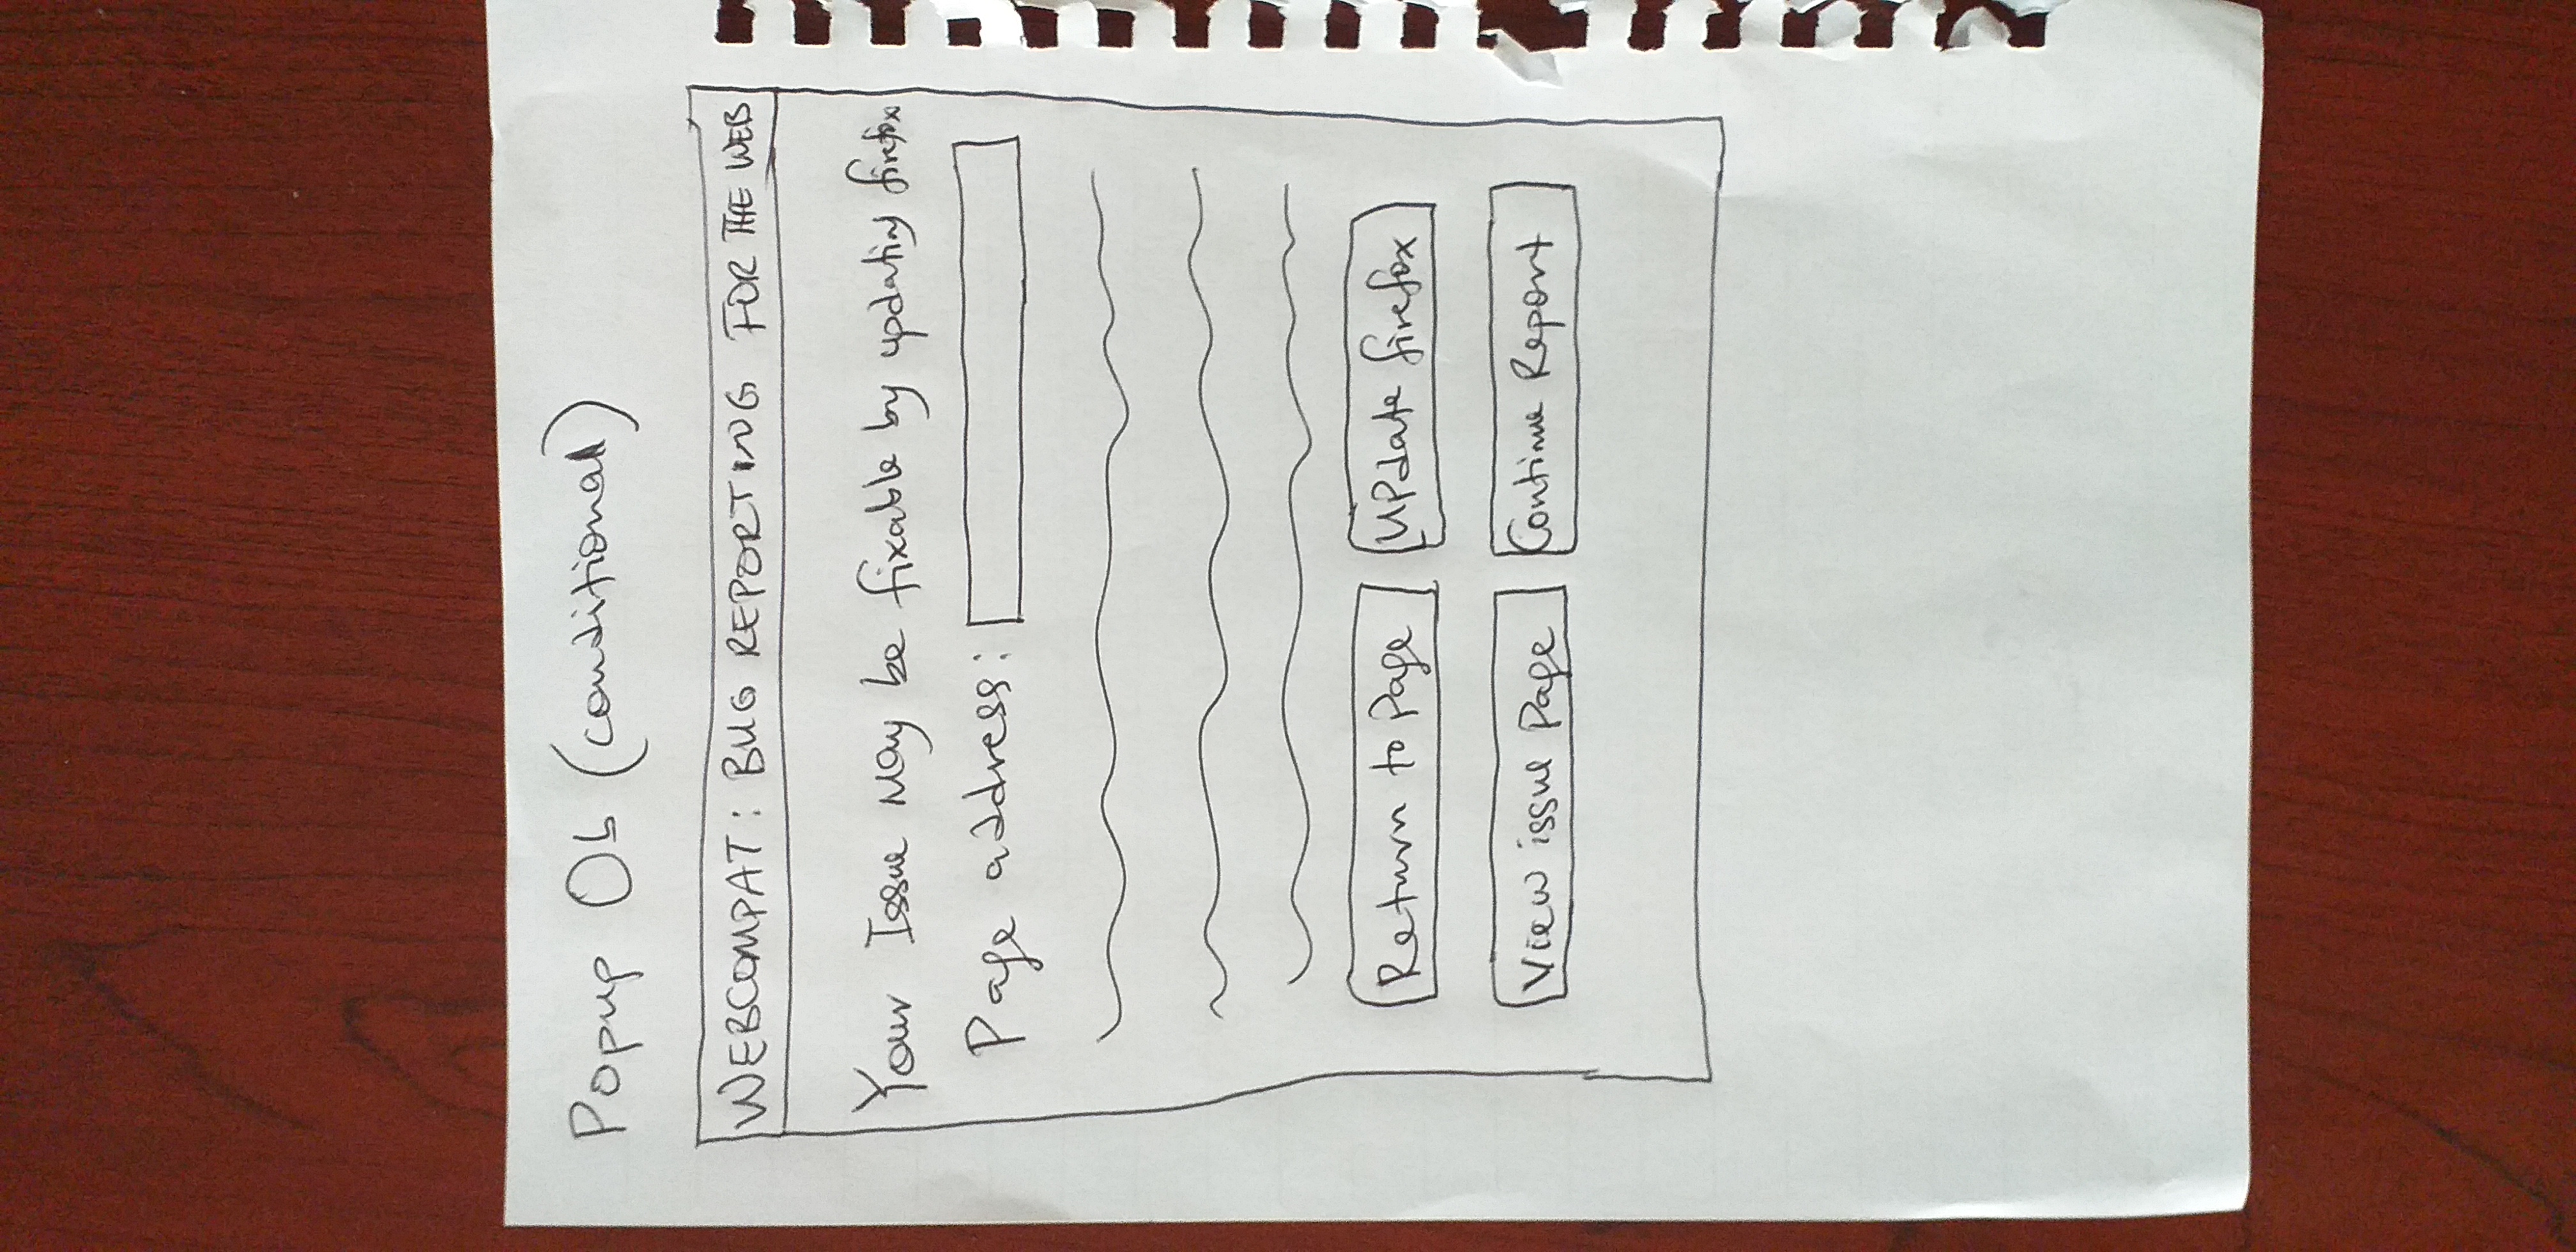 Popup 0b (conditional)
WEBCOMPAT: BUG REPORTING FOR THE WEB
Your Issue May be fixable by updating firefox
Page address:
Return to Page
UPdate firefox
View issue Page
Continue Report